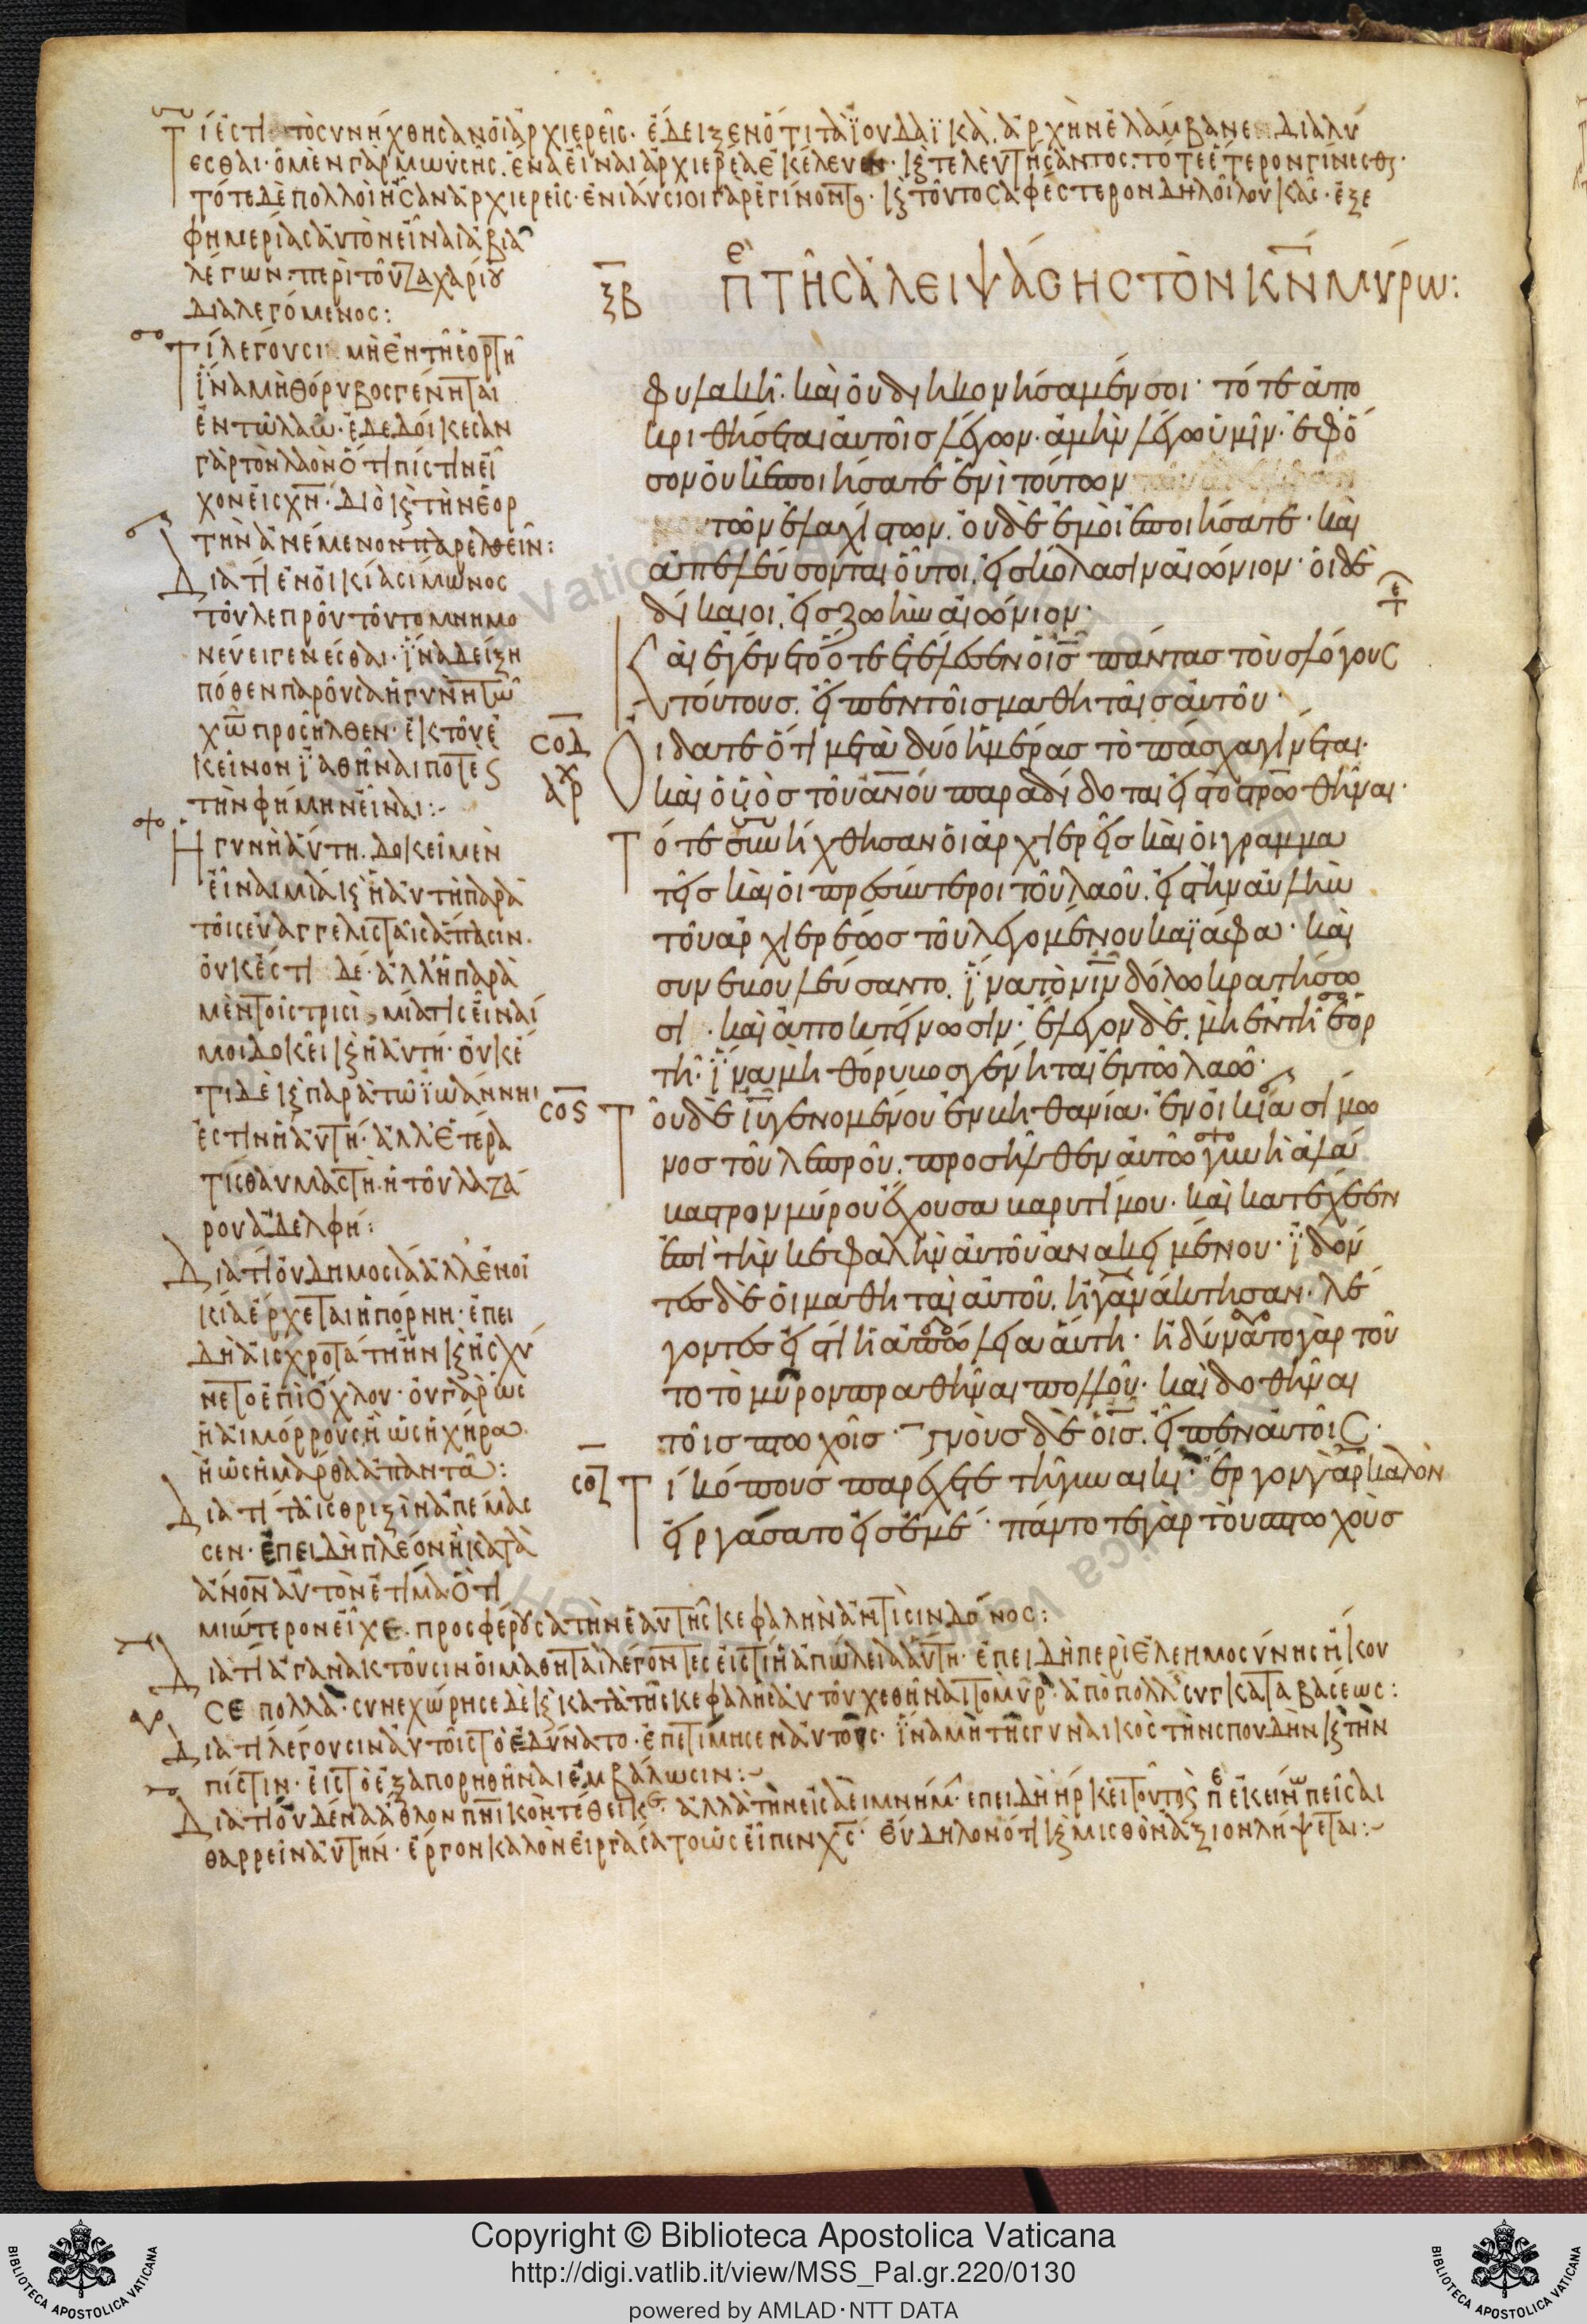 Τί ἐστι τὸ συνήχθησαν οἱ ἀρχιερεῖς· ἔδειξεν ὅτι τὰ ἰουδαϊκὰ ἀρχὴν ἐλάμβανε διαλύ
εσθαι· ὁ μὲν γὰρ μωυσῆς ἕνα εἶναι ἀρχιερέα ἐκέλευεν· καὶ τελευτήσαντος· τότε ἕτερον γίνεσθαι·
τότε δὲ πολλοὶ ἦσαν ἀρχιερεῖς· ἐνιαύσιοι γὰρ ἐγίνοντο· καὶ τοῦτο σαφέστερον δηλοῖ λουκᾶς· ἐξ ἐ
φημερίας αὐτὸν εἶναι ἀβιὰ
λέγων· περὶ τοῦ ζαχαρίου
διαλεγόμενος:
Τί λέγουσι μὴ ἐν τῇ ἑορτῇ
ἵνα μὴ θόρυβος γένηται
ἐν τῷ λαῷ· ἐδεδοίκεσαν
γὰρ τὸν λαὸν ὅτι πίστιν εἶ
χον εἰς χν· διὸ καὶ τὴν ἑορ
τὴν ἀνέμενον παρελθεῖν:
Διατί ἐν οἰκία σίμωνος
τοῦ λεπροῦ τοῦτο μνημο
νεύει γενέσθαι· ἵνα δείξη
πόθεν παροῦσα ἡ γυνὴ τῷ
χω προσῆλθεν· ἐκ τοῦ ἐ
κεῖνον ἰαθῆναι ποτὲ
τὴν φήμην εἶναι:
Ἡ γυνὴ αὕτη δοκεῖ μὲν
εἶναι μία καὶ ἡ αὐτὴ παρὰ
τοῖς εὐαγγελισταῖς ἅπασιν·
οὐκ ἔστι δέ· ἀλλ' ἡ παρὰ
μὲν τοῖς τρισὶ μία τις εἶναί
μοι δοκεῖ καὶ ἡ αὐτή· οὐκέ
τι δὲ καὶ παρὰ τῷ ἰωάννη
ἐστὶν ἡ αὐτή· ἀλλ' ἑτέρα
τις θαυμαστὴ ἡ τοῦ λαζά
ρου ἀδελφή:
Διατί οὐ δημοσία ἀλλ' ἐν οἰ
κία ἔρχεται ἡ πόρνη· ἐπει
δὴ αἰσχροτάτη ἦν καὶ ἠσχύ
νετο ἐπὶ ὄχλου· οὐ γὰρ ὡς
ἡ αἱμορροῦσα ἢ ὡς ἡ χήρα
ἢ ὡς ἡ μάρθα ἀπαντᾶ:
Διατί ταῖς θριξὶν ἀπέμασ
σεν· ἐπειδὴ πλέον ἢ κατὰ
ανον αὐτὸν ἐτίμα ὅτι
μιώτερον εἶχε· προσφέρουσα τὴν ἑαυτῆς κεφαλὴν
Διατί ἀγανακτοῦσιν οἱ μαθηταὶ λέγοντες εἰς τί ἡ ἀπώλεια αὕτη· ἐπειδὴ περὶ ἐλεημοσύνης ἤκου
σε πολλά· συνεχώρησε δὲ καὶ κατὰ τῆς κεφαλῆς αὐτοῦ χεθῆναι τὸ μύρον· ἀπὸ πολλῆς συγκαταβάσεως:
Διατί λέγουσιν αὐτοῖς τὸ ἐδύνατο· ἐπετίμησεν αὐτοῖς· ἵνα μὴ τῆς γυναικὸς τὴν σπουδὴν καὶ τὴν
πίστιν· εἰς τὸ ἐξαπορηθῆναι ἐμβάλωσιν:
Διατί οὐδένα ἆθλον τέθεικε· ἀλλὰ τὴν εἰσαεὶ μνήμην· ἐπειδὴ ἤρκει τοῦτο πεῖσαι
θαρρεῖν αὐτήν· ἔργον καλὸν εἰργάσατο ὡς εἶπεν χς· εὔδηλον ὅτι καὶ μισθὸν ἄξιον λήψεται:
ξβ Πε τῆς ἀλειψάσης τὸν κν μύρω:
φυλακῇ· καὶ οὐ διηκονήσαμέν σοι· τότε ἀπο
κριθήσεται αὐτοῖς λέγων· ἀμὴν λέγω ὑμῖν· ἐφ' ὅ
σον οὐκ ἐποιήσατε ἑνὶ τούτων
τῶν ἐλαχίστων· οὐδὲ ἐμοὶ ἐποιήσατε· καὶ
ἀπελεύσονται οὗτοι εἰς κόλασιν αἰώνιον· οἱ δὲ
δίκαιοι εἰς ζωὴν αἰώνιον·
Καὶ ἐγένετο ὅτε ἐτέλεσεν ὁ ις πάντας τοὺς λόγους
τούτους· εἶπεν τοῖς μαθηταῖς αὐτοῦ·
σοδ Οἴδατε ὅτι μετὰ δύο ἡμέρας τὸ πάσχα γίνεται·
καὶ ὁ υς τοῦ ανου παραδίδοται εἰς τὸ στρωθῆναι·
Τότε συνήχθησαν οἱ ἀρχιερεῖς καὶ οἱ γραμμα
τεῖς καὶ οἱ πρεσβύτεροι τοῦ λαοῦ· εἰς τὴν αὐλὴν
τοῦ ἀρχιερέως τοῦ λεγομένου καϊάφα· καὶ
συνεβουλεύσαντο ἵνα τὸν ιν δόλω κρατήσω
σι καὶ ἀποκτείνωσιν· ἔλεγον δὲ μὴ ἐν τῇ ἑορ
τῇ· ἵνα μὴ θόρυβος γένηται ἐν τῷ λαῷ·
σοϛ Τοῦ δὲ ιυ γενομένου ἐν βηθανία· ἐν οἰκία σίμω
νος τοῦ λεπροῦ προσῆλθεν αὐτῷ γυνὴ ἀλά
βαστρον μύρου ἔχουσα βαρυτίμου· καὶ κατέχεεν
ἐπὶ τὴν κεφαλὴν αὐτοῦ ἀνακειμένου· ἰδόν
τες δὲ οἱ μαθηταὶ αὐτοῦ ἠγανάκτησαν λέ
γοντες εἰς τί ἡ ἀπώλεια αὕτη· ἠδύνατο γὰρ τοῦ
το τὸ μύρον πραθῆναι πολλοῦ· καὶ δοθῆναι
τοῖς πτωχοῖς· γνοὺς δὲ ὁ ις εἶπεν αὐτοῖς·
σοζ Τί κόπους παρέχετε τῇ γυναικί· ἔργον γὰρ καλὸν
εἰργάσατο εἰς ἐμέ· πάντοτε γὰρ τοὺς πτωχοὺς
BIBLIOTECA APOSTOLICA VATICANA
Copyright © Biblioteca Apostolica Vaticana
http://digi.vatlib.it/view/MSS_Pal.gr.220/0130
powered by AMLAD·NTT DATA
BIBLIOTECA APOSTOLICA VATICANA